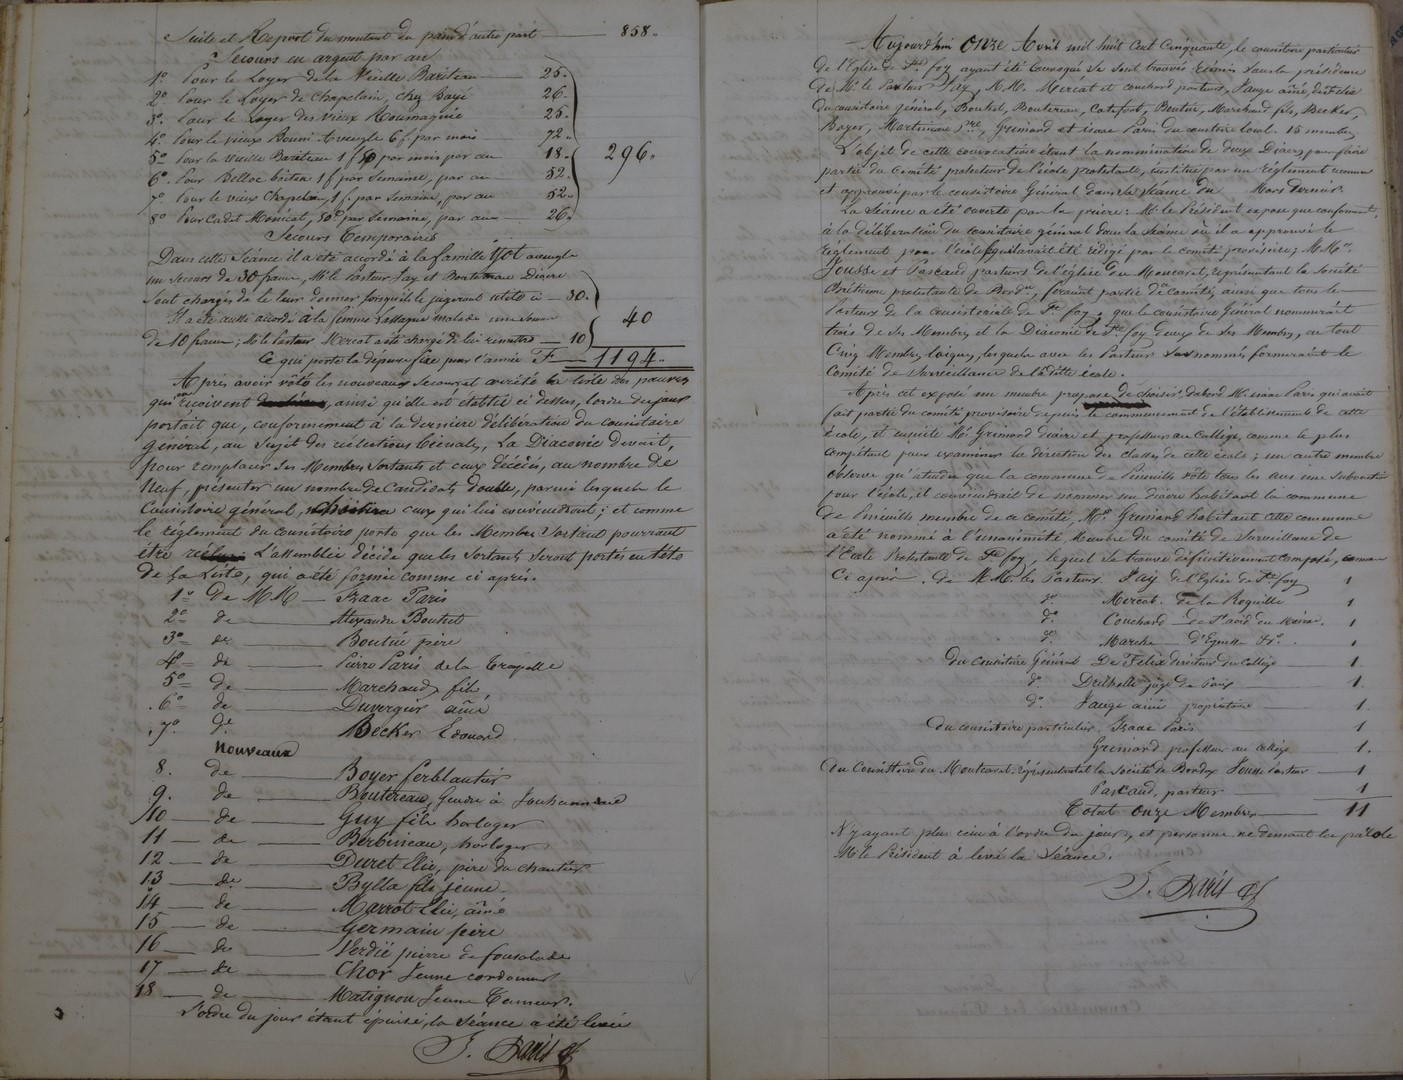 Suite et Report du montant du pain d'autre part — 858.
Secours en argent par an
1º Pour le Loyer de la Vieille Bariteau — 25.
2º Pour le Loyer de Chapelain, chez Bayé — 26.
3º Pour le Loyer des Vieux Roumagnie — 25.
4º Pour le vieux Bouni Aveugle 6f par mois — 72.
5º Pour la vieille Bariteau 1 f 50 par mois par an — 18. 296.
6º Pour Belloc boiteu 1f par Semaine, par an — 52.
7º Pour le vieux Chapelain, 1f. par Semaine, par an — 52.
8º Pour Cadet Monicat, 50c par Semaine, par an — 26.
Secours Temporaires
Dans cette Séance il a été accordé à la famille aveugle
un secours de 30 francs, Mr le Pasteur Fay et Boutereau Diacre
sont chargés de le leur donner lorsqu'ils le jugeront utile ci — 30.
Il a été aussi accordé à la femme Lassagne malade une somme 40
de 10 francs; Mr le Pasteur Mercat est chargé de lui remettre — 10
Ce qui porte la dépense fixe pour l'année F — 1194.
Après avoir voté les nouveaux Secours et arrêté la liste des pauvres
qui reçoivent, ainsi qu'elle est établie ci dessus, l'ordre du jour
portait que, conformément à la dernière délibération du consistoire
Général, au sujet des réélections triénales, La Diaconie devait,
pour remplacer ses Membres sortants et ceux décédés, au nombre de
Neuf, présenter un nombre de Candidats double, parmi lesquels le
Consistoire général, choisira ceux qui lui conviendront; et comme
le règlement du consistoire porte que les Membres Sortant pourront
être réélus L'assemblée décide que les Sortants seront portés en tête
de la Liste, qui a été formée comme ci après.
1º de MM — Isaac Paris
2º de — Alexandre Bouhet
3º de — Boutin père
4º de — Pierre Paris de la
5º de — Marchand fils
6º de — Duvergier aîné
7º de Becker Edouard
Nouveaux
8. de — Boyer ferblantier
9. de — Boutereau, Gendre à
10 — de — Guy fils horloger
11 — de — Berbineau, horloger
12 — de — Duret Elie, père du chantier
13 — de — Bylla fils jeune
14 — de — Marrot Elie, aîné
15 — de — Germain père
16 — de — Verdié pierre de
17 — de — Chor Jeune cordonnier
18 — de — Matignon Jeune Tanneur.
L'ordre du jour étant épuisé, la Séance a été levée
I. Paris
Aujourd'hui Onze Avril mil huit Cent Cinquante, le consistoire particulier
de l'Eglise de Ste foy ayant été Convoqué se sont trouvés réunis sous la présidence
de Mr le Pasteur Fay, M.M. Mercat et Couchard pasteurs, Jauge aîné,
du consistoire général, Bouhet, Boutereau, Boutin, Marchand fils, Becker,
Boyer, Martineau Pre, Grenard et isaac Paris du consistoire local. 15 membres
L'objet de cette convocation étant la nommination de deux Diacres, pour faire
partie du Comité protecteur de l'école protestante, institué par un règlement
et approuvé par le consistoire Général dans sa Séance du Mars Dernier.
La Séance a été ouverte par la prière: Mr le Président expose que conformément,
à la délibération du consistoire général dans la séance où il a approuvé le
règlement pour l'école qui avait été rédigé par le comité provisoire, M.Mrs.
Jousse et Pascaud pasteurs de l'église de Moncaret, représentant la Société
Chrétienne protestante de Bordx, feraient partie de ce comité, ainsi que tous les
Pasteurs de la Consistoriale de Ste foy, que le consistoire Général nommerait
trois de ses Membres, et la Diaconie de Ste foy deux de Ses Membres, en tout
Cinq Membres laïques, lesquels avec les Pasteurs susnommés formeraient le
Comité de Surveillance de la dite école.
Après cet exposé un membre propose de choisir d'abord Mr isaac Paris qui avait
fait partie du comité provisoire depuis le commencement de l'établissement de cette
école, et ensuite Mr Grenard diacre et professeur au Collège, comme le plus
compétent pour examiner la direction des classes de cette école; un autre membre
observe qu'attendu que la commune de Pineuilh vote tous les ans une Subvention
pour l'école, il conviendrait de nommer un diacre habitant la commune
de Pineuilh membre de ce comité, Mr Grenard habitant cette commune
a été nommé à l'unanimité Membre du comité de Surveillance de
l'Ecole Protestante de Ste foy, lequel se trouve définitivement composé, comme
Ci après. de M.M. les Pasteurs. Fay de l'Eglise de Ste foy 1
do Mercat. de la Roquille 1
do Couchard — de St avid du 1
do Marche — d'Eynesse &a. 1
du consistoire Général De Felix directeur du Collège — 1.
do Drilholle juge de Paix — 1.
do Jauge aîné propriétaire — 1.
du consistoire particulier Isaac Paris — 1
Grenard professeur au collège 1.
du Consistoire du Montcaret, représentant la société de Bordx Jousse Pasteur — 1
Pascaud, pasteur — 1
Total Onze Membres — 11
N'y ayant plus rien à l'ordre du jour, et personne ne demandant la parole
Mr le Président à levé la Séance.
I. Paris